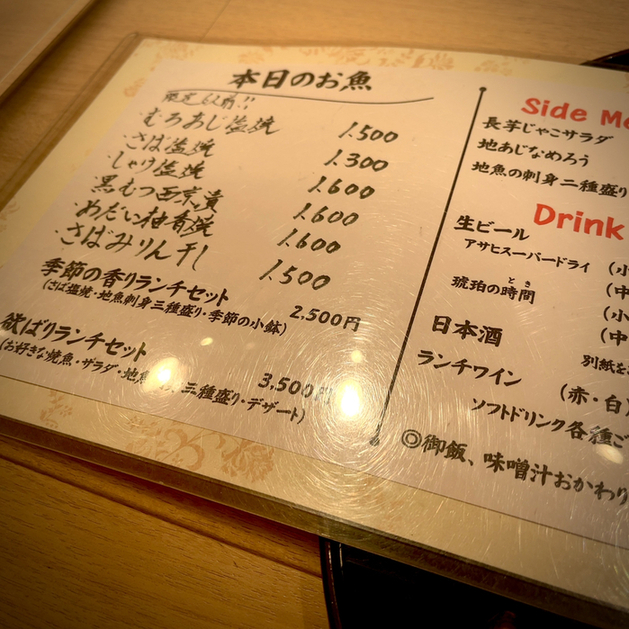 本日のお魚
限定 6人前!!
むろあじ塩焼 1.500
・さば塩焼 1.300
・しゃけ塩焼 1.600
・黒むつ西京漬 1.600
・めだい柚香焼 1.600
・さばみりん干し 1.500
季節の香りランチセット 2,500円
(さば塩焼・地魚刺身三種盛り・季節の小鉢)
欲ばりランチセット 3,500円
(お好きな焼魚・サラダ・地魚 三種盛り・デザート)
Side Me
長芋じゃこサラダ
地あじなめろう
地魚の刺身二種盛り
Drink
生ビール
アサヒスーパードライ (小
(中
琥珀の時間 (小
とき
(中
日本酒 別紙を
ランチワイン (赤・白)
ソフトドリンク各種ご
◎御飯、味噌汁おかわり